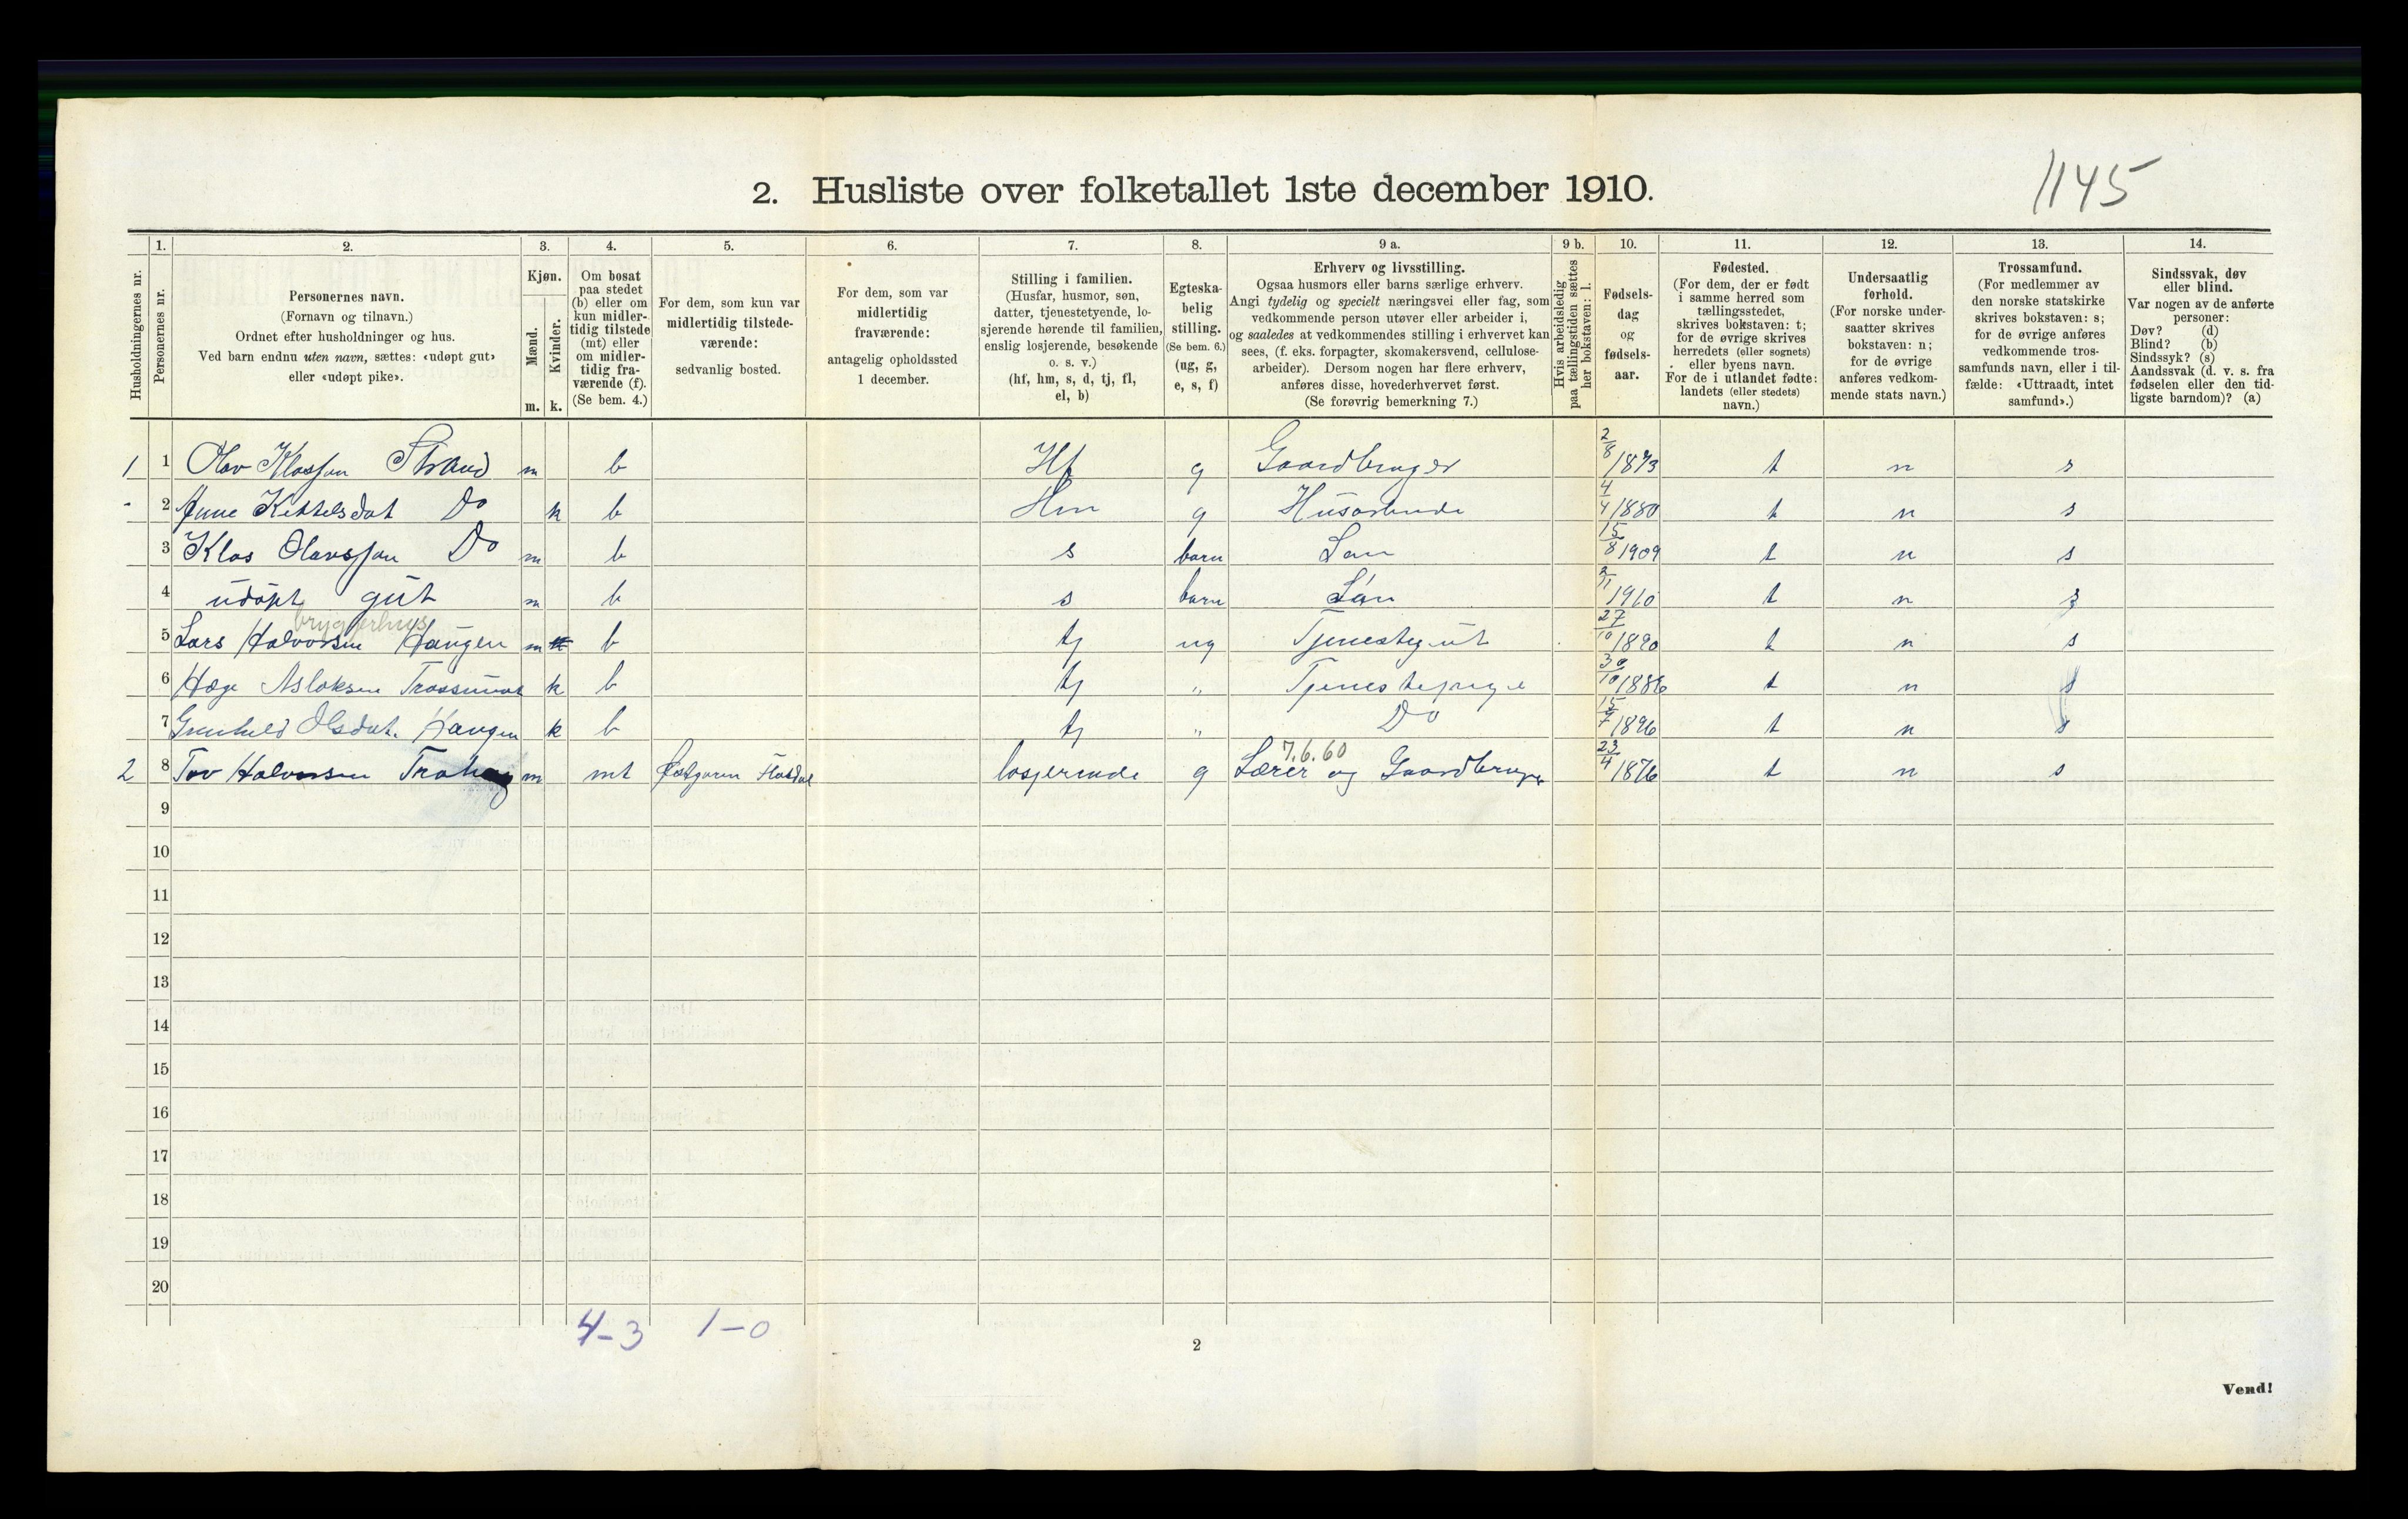 1145
2. Husliste over folketallet 1ste december 1910.
1. 2. 3. 4. 5. 6. 7. 8. 9 a. 9 b. 10. 11. 12. 13. 14.
Husholdningernes nr.
Personernes nr.
Personernes navn.
(Fornavn og tilnavn.)
Ordnet efter husholdninger og hus.
Ved barn endnu uten navn, sættes: «udøpt gut»
eller «udøpt pike».
Kjøn.
Mænd.
Kvinder.
m. k.
Om bosat
paa stedet
(b) eller om
kun midler-
tidig tilstede
(mt) eller
om midler-
tidig fra-
værende (f).
(Se bem. 4.)
For dem, som kun var
midlertidig tilstede-
værende:
sedvanlig bosted.
For dem, som var
midlertidig
fraværende:
antagelig opholdssted
1 december.
Stilling i familien.
(Husfar, husmor, søn,
datter, tjenestetyende, lo-
sjerende hørende til familien,
enslig losjerende, besøkende
o. s. v.)
(hf, hm, s, d, tj, fl,
el, b)
Egteska-
belig
stilling.
(Se bem. 6.)
(ug, g,
e, s, f)
Erhverv og livsstilling.
Ogsaa husmors eller barns særlige erhverv.
Angi tydelig og specielt næringsvei eller fag, som
vedkommende person utøver eller arbeider i,
og saaledes at vedkommendes stilling i erhvervet kan
sees, (f. eks. forpagter, skomakersvend, cellulose-
arbeider). Dersom nogen har flere erhverv,
anføres disse, hovederhvervet først.
(Se forøvrig bemerkning 7.)
Hvis arbeidsledig
paa tællingstiden sættes
her bokstaven: l.
Fødsels-
dag
og
fødsels-
aar.
Fødested.
(For dem, der er født
i samme herred som
tællingsstedet,
skrives bokstaven: t;
for de øvrige skrives
herredets (eller sognets)
eller byens navn.
For de i utlandet fødte:
landets (eller stedets)
navn.)
Undersaatlig
forhold.
(For norske under-
saatter skrives
bokstaven: n;
for de øvrige
anføres vedkom-
mende stats navn.)
Trossamfund.
(For medlemmer av
den norske statskirke
skrives bokstaven: s;
for de øvrige anføres
vedkommende tros-
samfunds navn, eller i til-
fælde: «Uttraadt, intet
samfund».)
Sindssvak, døv
eller blind.
Var nogen av de anførte
personer:
Døv? (d)
Blind? (b)
Sindssyk? (s)
Aandssvak (d. v. s. fra
fødselen eller den tid-
ligste barndom)? (a)
1 1 Olav Klassen Strand m b Hf g Gaardbruger 2/8 1873 t n s
- 2 Anne Kittelsdat Do k b Hm g Husstende 4/4 1880 t n s
3 Klas Olavssøn Do m b s barn Søn 15/8 1909 t n s
4 udøpt gut m b s barn Søn 1910 t n s
bryggerhus
5 Lars Halvorsen Haugen m b tj ug Tjenestegut 27/10 1890 t n s
6 Hæge Aslaksen k b tj „ Tjenestepige 30/10 1886 t n s
7 Gunhild Olsdat. Haugen k b tj „ Do 15/7 1896 t n s
7.6.60
2 8 Tov Halvorsen m mt losjerende g Lærer og Gaardbruger 23/4 1876 t n s
9
10
11
12
13
14
15
16
17
18
19
20
4-3 1-0
2
Vend!